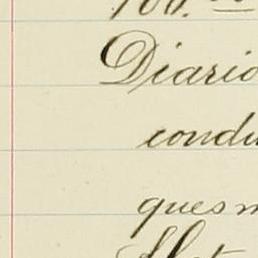 100.
Diario
condu
ques m